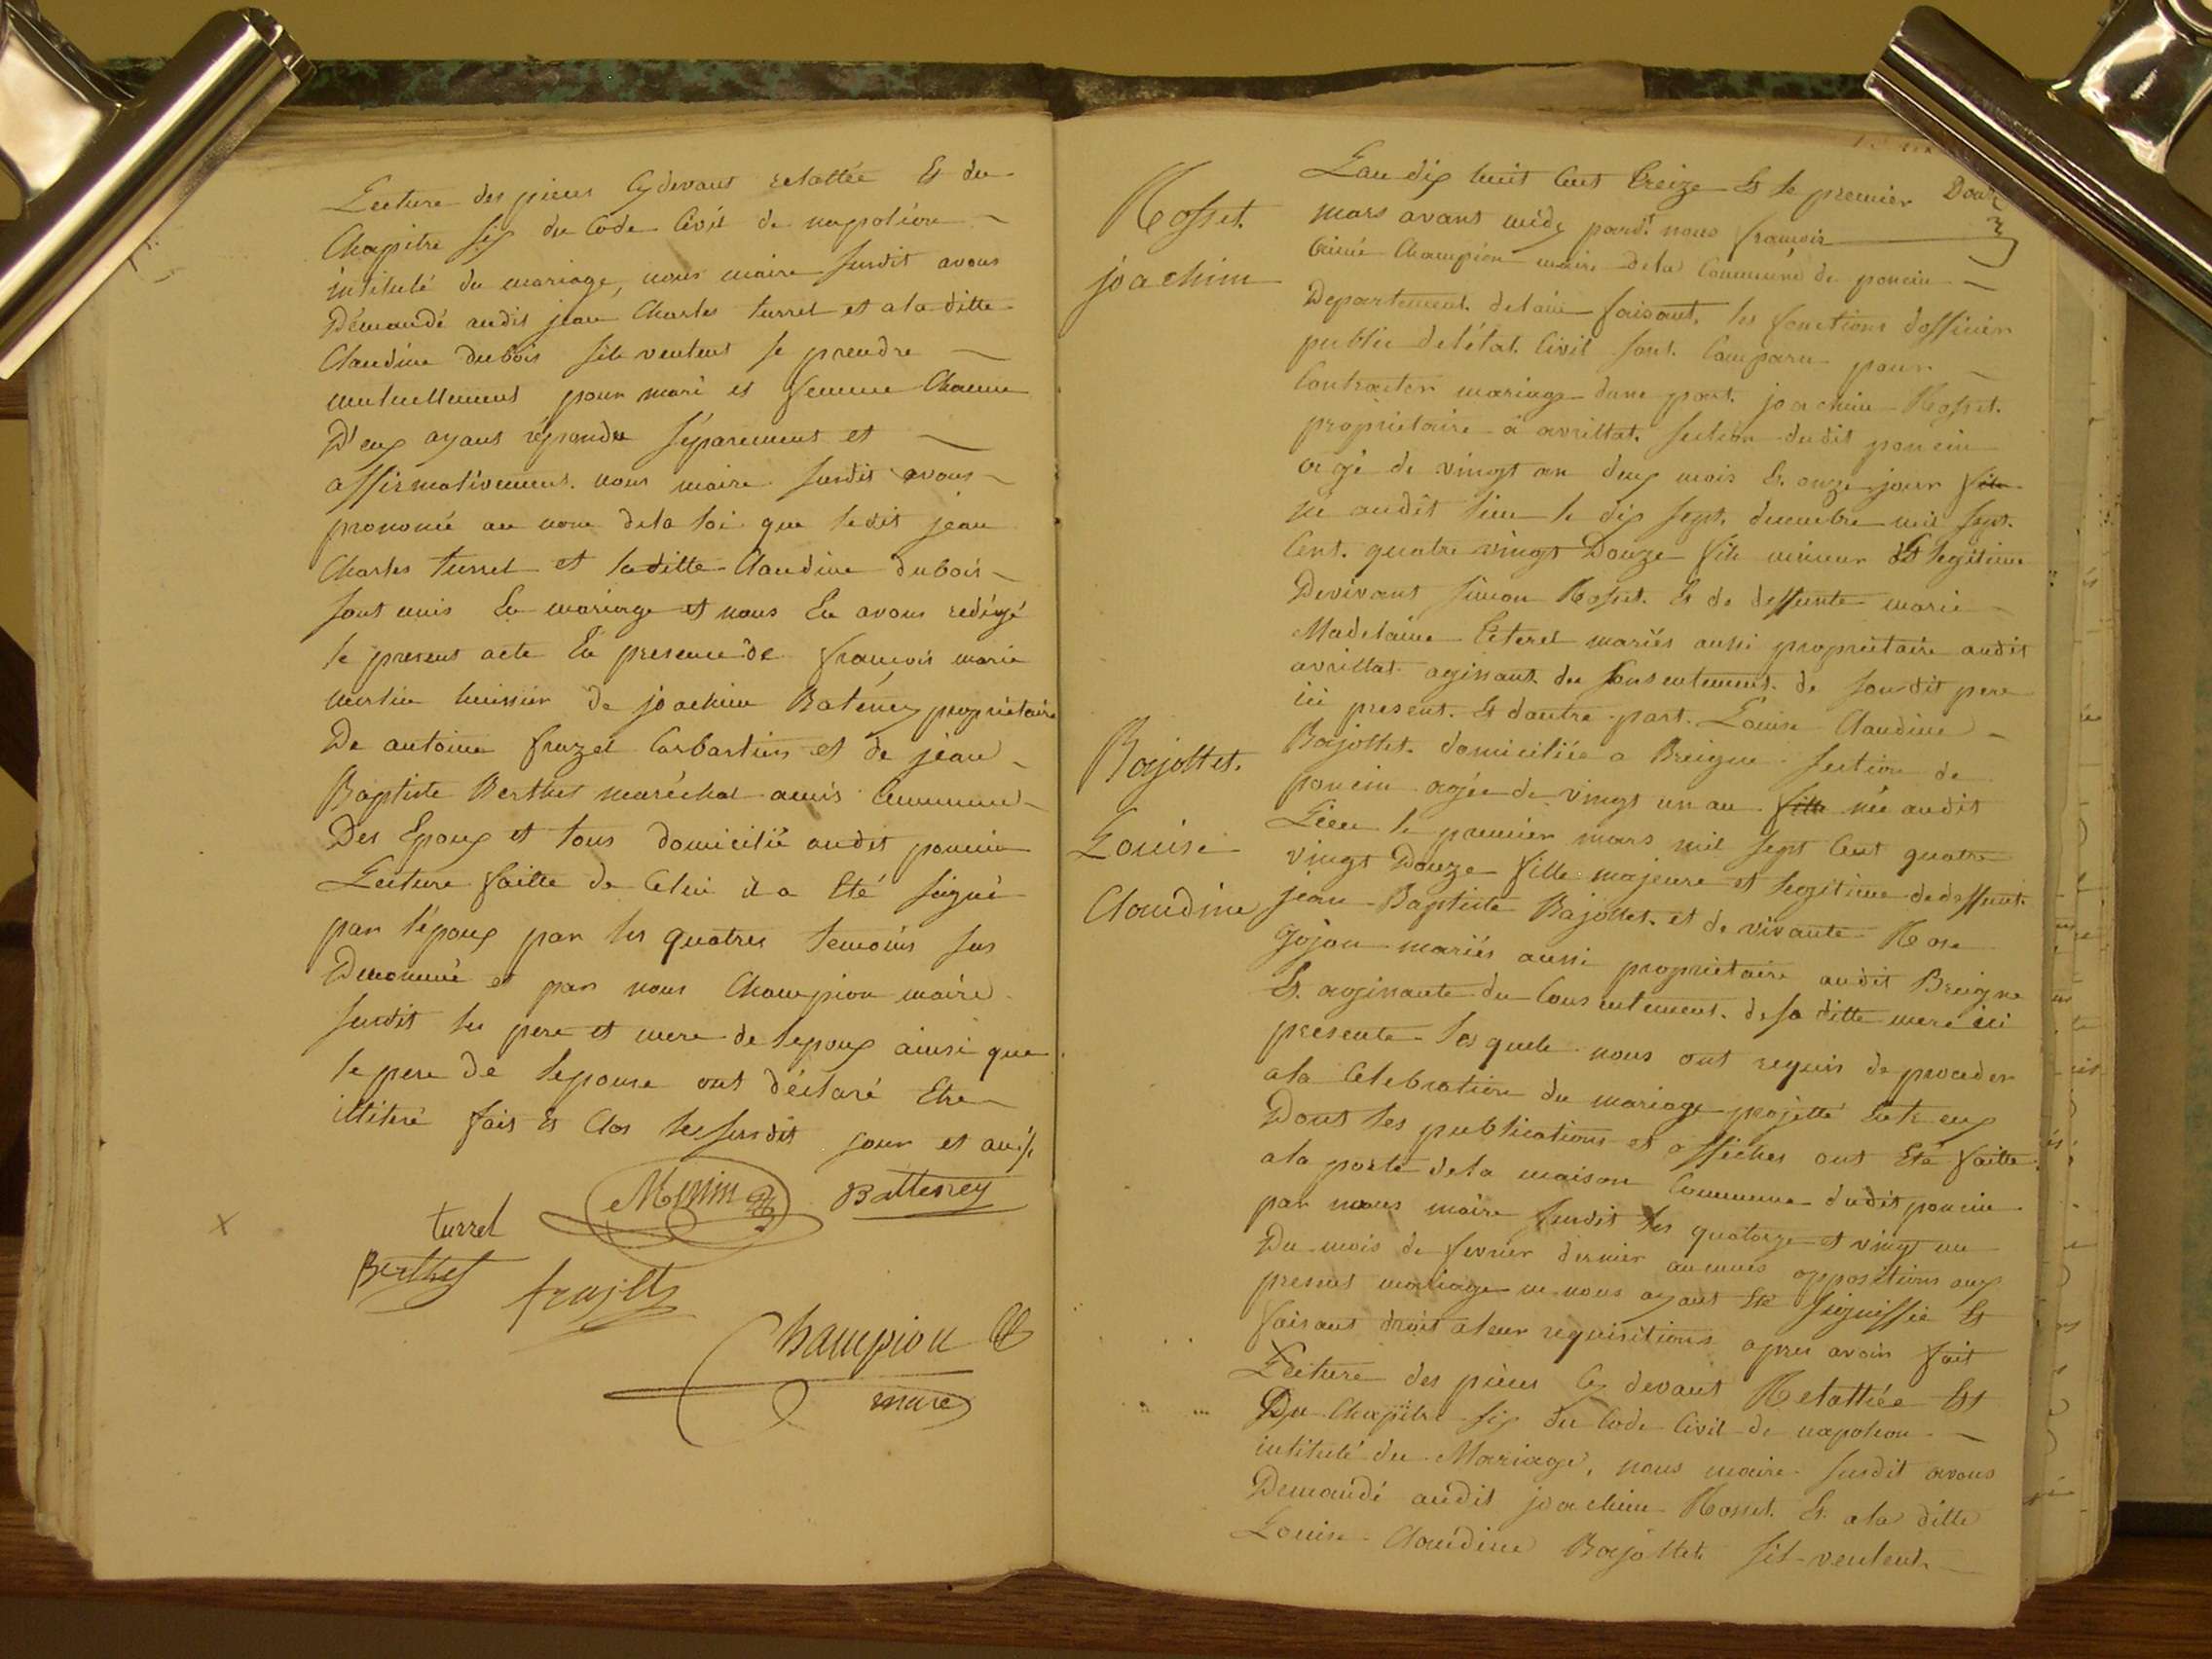 Lecture des pieces cy devant relattée Et du
Chapitre six du Code Civil de napoléon
intitulé du mariage, nous maire susdit avons
Démandé audit jean Charles turrel et a la ditte
Claudine dubois sils veulent se prendre
mutuellement pour mari et femme Chacun
D'eux ayant répondu séparement et
affirmativement. nous maire susdit avons
prononcé au nom dela loi que ledit jean
Charles turrel et laditte Claudine dubois
sont unis En mariage et nous En avons redigé
le present acte En presence de françois marie
huissier de joachim Baténey propriétaire
De antoine et de jean
Baptiste Berthet maréchal amis
Des Epoux et tous domicilié audit poncin
Lecture faitte de Celui il a Eté signé
par l'époux par les quatres temoins sus
Denommé et par nous Champion maire
susdit les pere et mere de lepoux ainsi que
le pere de lepouse ont déclaré Etre
illiteré fait Et Clos les susdit jour et an
turrel Batteney
Berthet
Champion
maire
Rosset
joachim
Lan dix huit Cent treize Et le premier Douze
mars avant midy pardt nous françois
Champion maire dela Commune de poncin
Departement delain faisant les fonctions dofficier
public delétat Civil sont Comparu pour
Contracter mariage dune part joachim Rosset
propriétaire à avrillat section dudit poncin
agé de vingt an deux mois Et onze jour fils
né audit lieu le dix sept decembre mil sept
Cent quatre vingt Douze fils mineur Et legitime
Devivant simon Rosset Et de deffunte marie
Madelaine mariés aussi propriétaire audit
avrillat agissant du Consentement de son dit pere
ici present. Et dautre part. Louise Claudine
Bajollet.
Bajollet domiciliée a Breigne section de
poncin agée de vingt un an fille née audit
Louise
Lieu le premier mars mil sept Cent quatre
vingt Douze fille majeure et legitime dedeffunt
Claudine
jean Baptiste Bajollet et de vivante Rose
Gojon mariés aussi propriétaire audit Breigne
Et agissante du Consentement de sa ditte mere ici
presente lesquels nous ont requis de proceder
ala Celebration du mariage projetté Entreux
Dont les publications et affiches ont Eté faitte
ala porte dela maison Commune dudit poncin
par nous maire susdit les quatorze et vingt un
Du mois de fevrier dernier aucunes oppositions aux
present mariage ne nous ayant Eté signiffié Et
faisant droit aleur requisitions apres avoir fait
Lecture des pieces Cy devant Relattée Et
Du Chapitre six du Code Civil de napoleon
intitulé du Mariage, nous maire susdit avons
Demandé audit joachim Rosset Et ala ditte
Louise Claudine Bajollet sil veulent